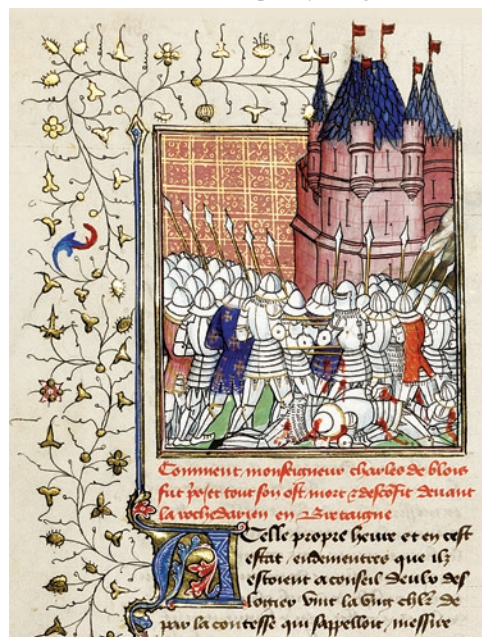 Comment monseigneur charles de blois
fut p's et tout son ost mort & descōfit devant
la rochedarien en Bretaigne
A celle propre heure et en cest
estat endementres que ilz
estoient a conseil deulx des
logier vint la ung chlr de
par la contesse qui sappelloit messire